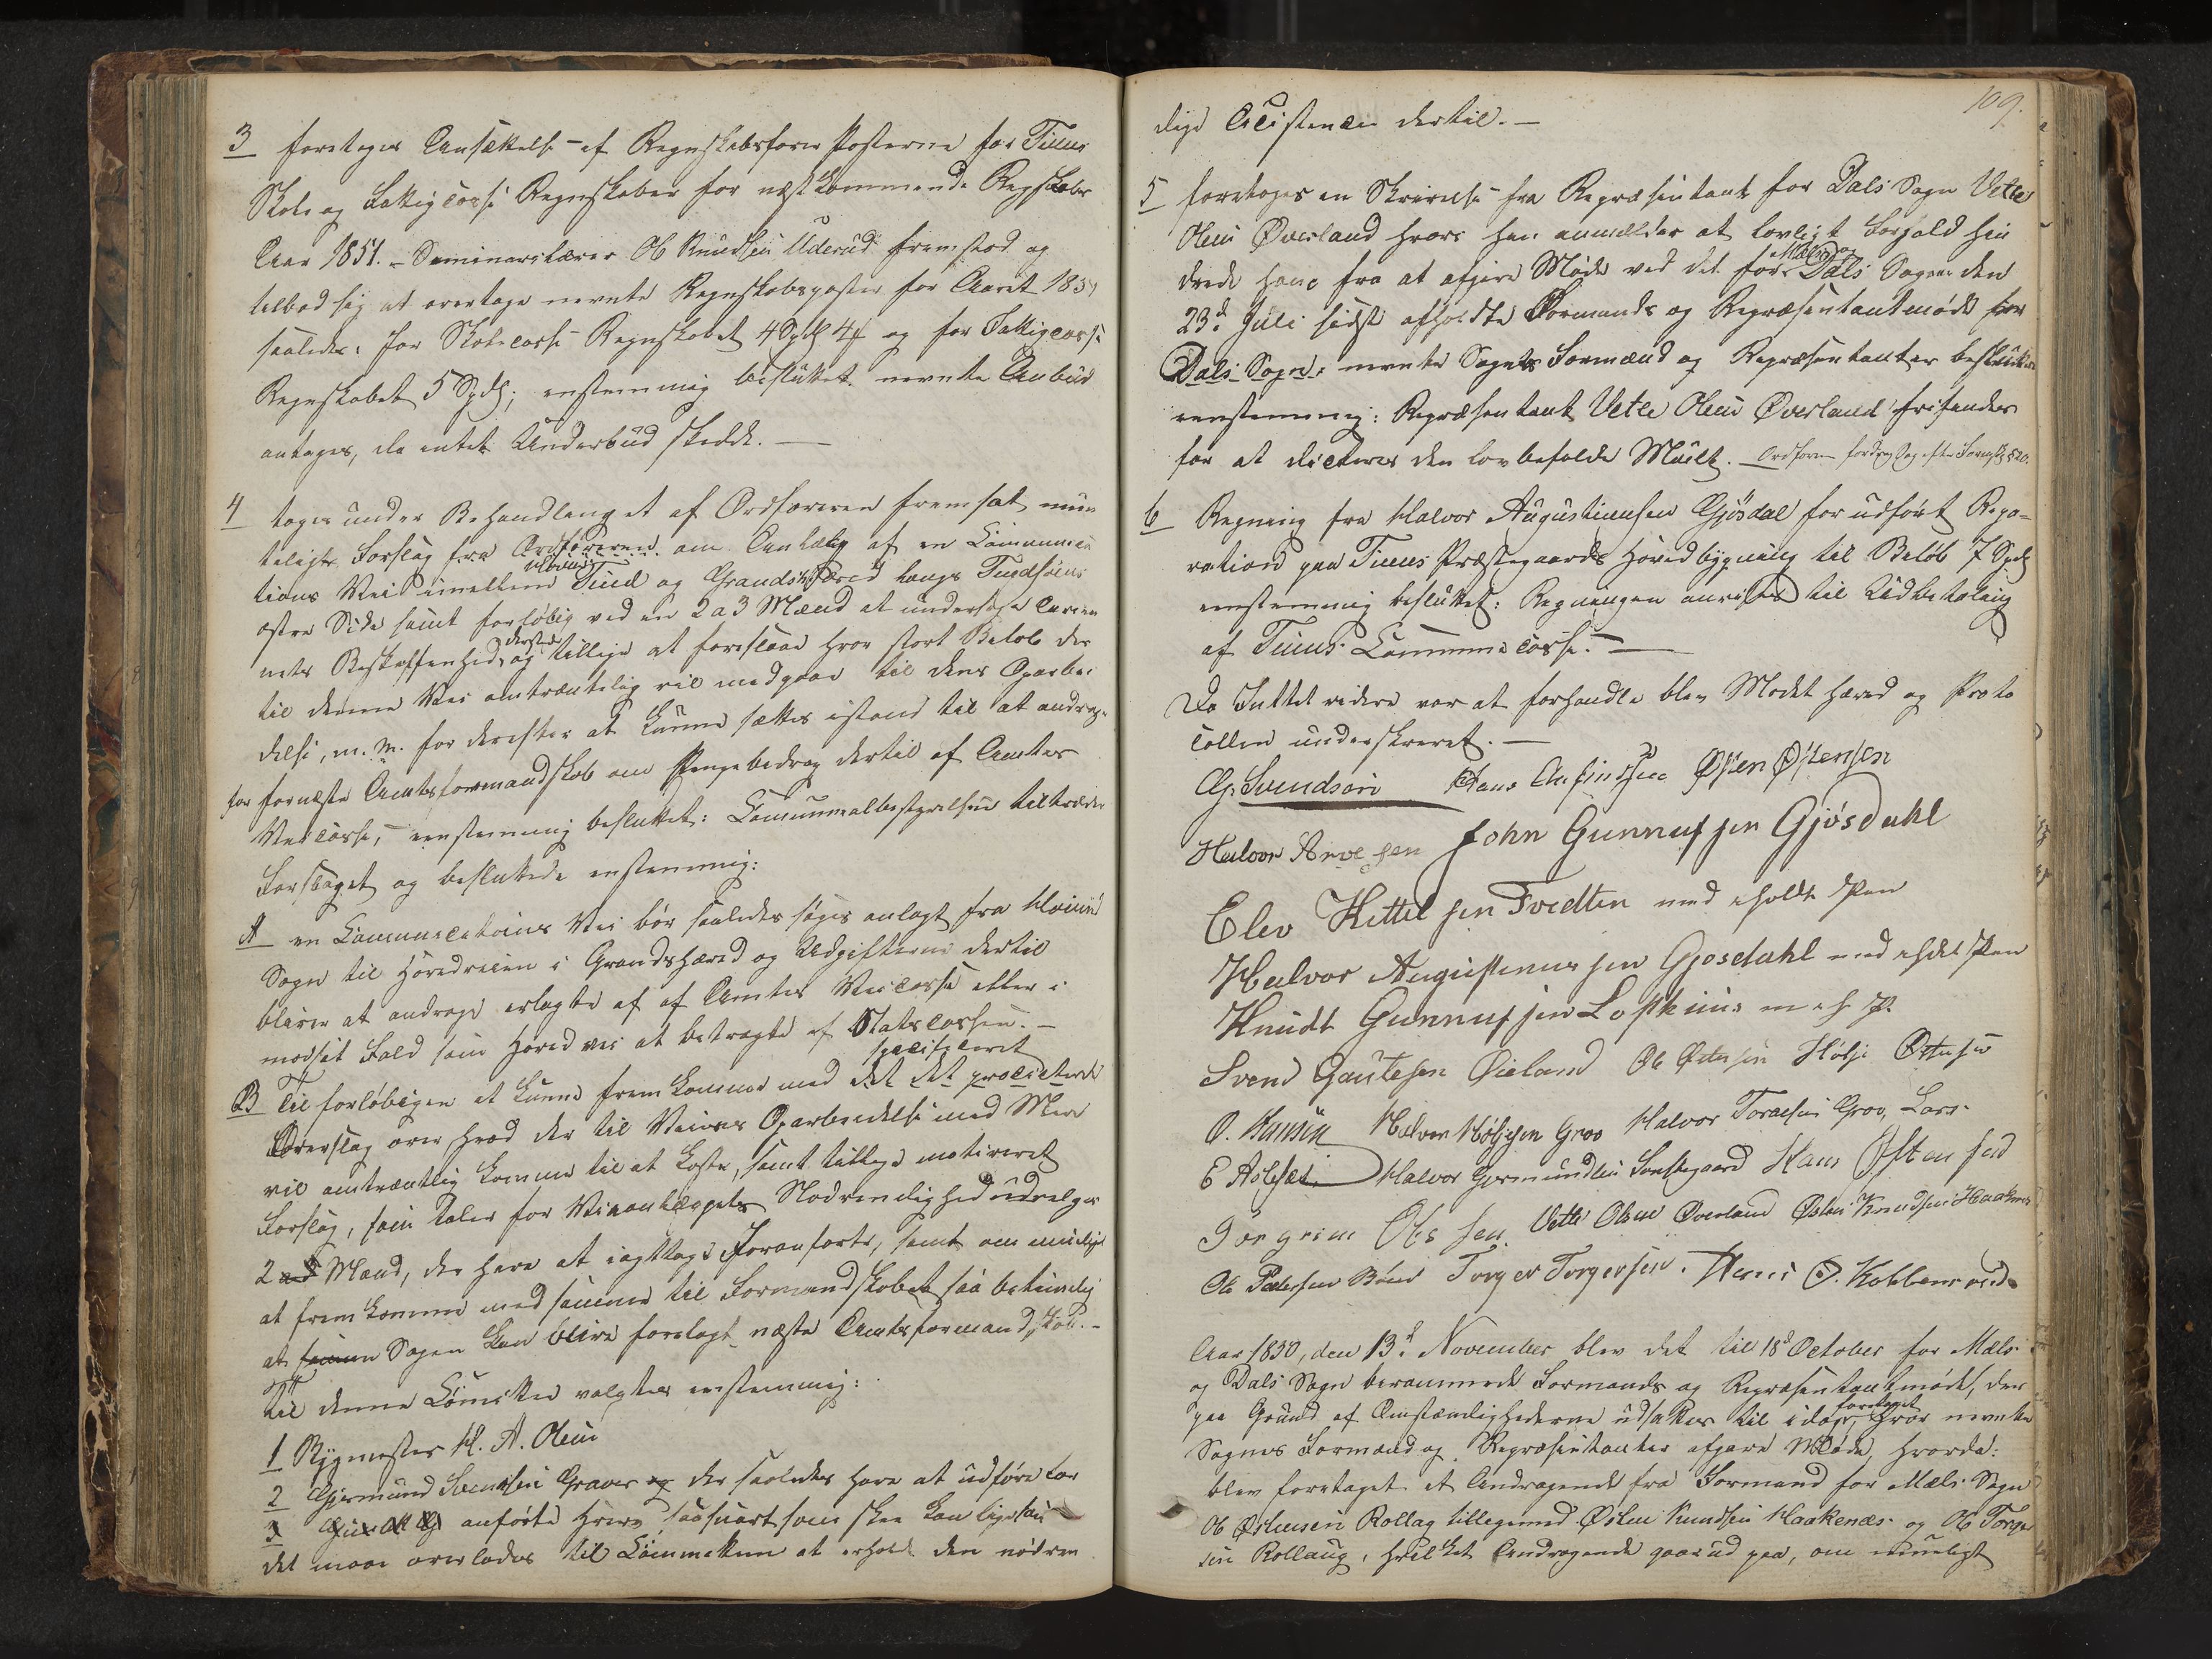 3 foretoges Ansættelse af Regnskabsfører Posterne for Tinns
Skole og Fattigcasse Regnskaber for næstkommende Regskabs
Aar 1851. – Seminarelærer Ole Knudsen Uderud fremstod og
tilbød sig at overtage nevnte Regnskabsposter for Aaret 1851
saaledes: for Skolecasse Regnskabet 4 Spd og for Fattigcasse
Regnskabet 5 Spd; enstemmig besluttet nevnte Anbud
antages, da intet Underbud skedde. —
4 toges under Behandling et af Ordføreren fremsat mun
teligt Forslag fra Ordføreren om Anlæg af en Communica
tions Vei imellem Hovin Tind og Grandsherred langs Tindsøens
østre Side samt forløbig ved en 2 a 3 Mænd at undersøge Terræ
nets Beskaffenhed, dersteds og tillige at foreslaae hvor stort Beløb der
til denne Vei omtrentelig vil medgaae til dens Oparbei
delse, m. m. for derefter at kunne sættes istand til at andrage
for fornæste Amtsformandskab om Pengebedrag dertil af Amtets
Veicasse, – eenstemmig besluttet: Communalbestyrelsen tiltræder
Forslaget og besluttede enstemmig:
A en Communications Vei bør saaledes søges anlagt fra Hovind
Sogn til Hovedveien i Grandsherred og Udgifterne dertil
bliver at andrage erlagte af af Amtets Veicasse eller i
modsat Fald som Hovedvei at betragte af Statscassen. –
B Til forløbigen at kunne fremkomme med det det specificeret
Overslag over, hvad der til Veiens Oparbeidelse med Mere
vil omtrentlig komme til at koste, samt tillige motiveret
Forslag, som taler for Veianlæggets Nødvendighed udvelges
2 Mænd, der have at iagttage Foranførte, samt om muligt
at fremkomme med samme til Formandskabet saa betimelig
at Sagen kan blive forelagt næste Amtsformandskab. –
Til denne Committee valgtes eenstemmig:
1 Bygmester H. A. Olsen
2 Gjermund Svendsen Graver der saaledes have at udføre for
3 anførte Hverv saasnart som skee kan ligesom
det maae overlades til Committeen at erholde den nødven
109.
dige Assistence dertil. –
5 foretoges en Skrivelse fra Repræsentant for Dals Sogn Vetle
Olsen Øverland hvori han anmelder at lovligt Forfald hin
drede ham fra at afgive Møde ved det for Mæls og Dals Sogne den
23d Juli sidst afholdte Formands og Repræsentantmøde for
Dals Sogn: nevnte Sogns Formænd og Repræsentanter besluttede
eenstemmig: Repræsentant Vetle Olsen Øverland frifindes
for at dicteres den lovbefalede Mulct. –
6 Regning fra Halvor Augustinusen Gjøsdal for udført Repa-
ration paa Tinns Præstegaards Hovedbygning til Beløb 7 Spd
eenstemmig besluttet: Regningen anvises til Udbetaling
af Tinns Communecasse. —
Da Inttet videre var at forhandle blev Mødet hævet og Proto
collen underskrevet. –
G. Svendsen Hans Østen Østensen
Halvor Arvesen John Gunnufsen Gjøsdahl
Elev Kittilsen Tvedten med holdt Pen
Halvor Augustinussen Gjøsdahl med holdt Pen
Knudt Gunnufsen Lofthuus m. h. P.
Svend Gautesen Øieland Ole Østensen Hølje Østensen
O. Hansen Halvor Høljesen Grov Halvor Torgersen Grov, Lars-
E Halvor Gjermundsen Hans Østensen
Torgrim Olssen. Vetle Olsen Øverland Østen Knudsen Haakenæs
Ole Pedersen Bøen Torger Torgersen. Hans O. Kobbervold.
Aar 1850, den 13d November blev det til 18d October for Mæls
og Dals Sogn berammede Formands og Repræsentantmøde, der
paa Grund af Omstændighederne udsattes til idag, foretaget hvor nevnte
Sognes Formænd og Repræsentanter afgave Møde, hvorda:
blev foretaget et Andragende fra Formand for Mæls Sogn
Ole Østensen Rollag tilligemed Østen Knudsen Haakenæs og Ole Torger
sen Rollaug, hvilket Andragende gaar ud paa, om mueligt